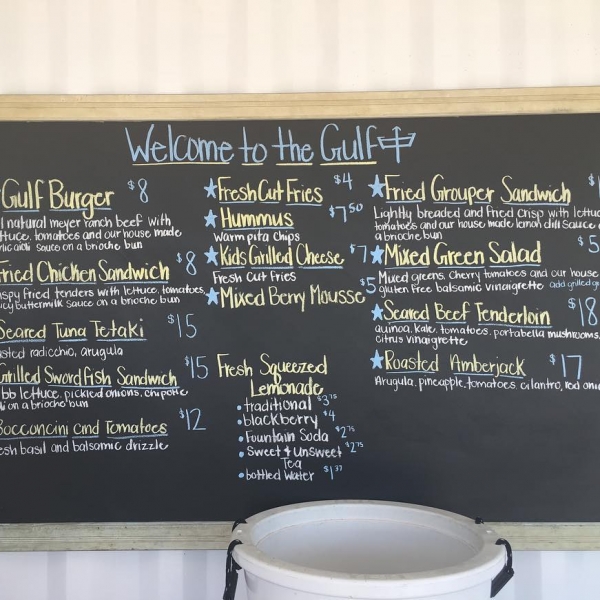 Welcome to the Gulf
Gulf Burger $8
natural meyer ranch beef with
lettuce, tomatoes and our house made
sauce on a brioche bun
Fried Chicken Sandwich $8
crispy fried tenders with lettuce, tomatoes,
buttermilk sauce on a brioche bun
Seared Tuna Tetaki $15
radicchio, arugula
Grilled Swordfish Sandwich $15
bibb lettuce, pickled onions, chipotle
on a brioche bun
Bocconcini and Tomatoes $12
fresh basil and balsamic drizzle
Fresh Cut Fries $4
Hummus $7.50
warm pita chips
Kids Grilled Cheese $7
Fresh Cut Fries
Mixed Berry Mousse $5
Fresh Squeezed
Lemonade
traditional $3.75
blackberry $4
Fountain Soda $2.75
Sweet & Unsweet $2.75
Tea
bottled water $1.37
Fried Grouper Sandwich
Lightly breaded and fried crisp with lettuce
tomatoes and our house made lemon chili sauce
a brioche bun
Mixed Green Salad $5
Mixed greens, cherry tomatoes and our house
gluten free balsamic vinaigrette add grilled
Seared Beef Tenderloin $18
quinoa, kale, tomatoes, portabella mushrooms,
citrus vinaigrette
Roasted Amberjack $17
Arugula, pineapple, tomatoes, cilantro, red onion